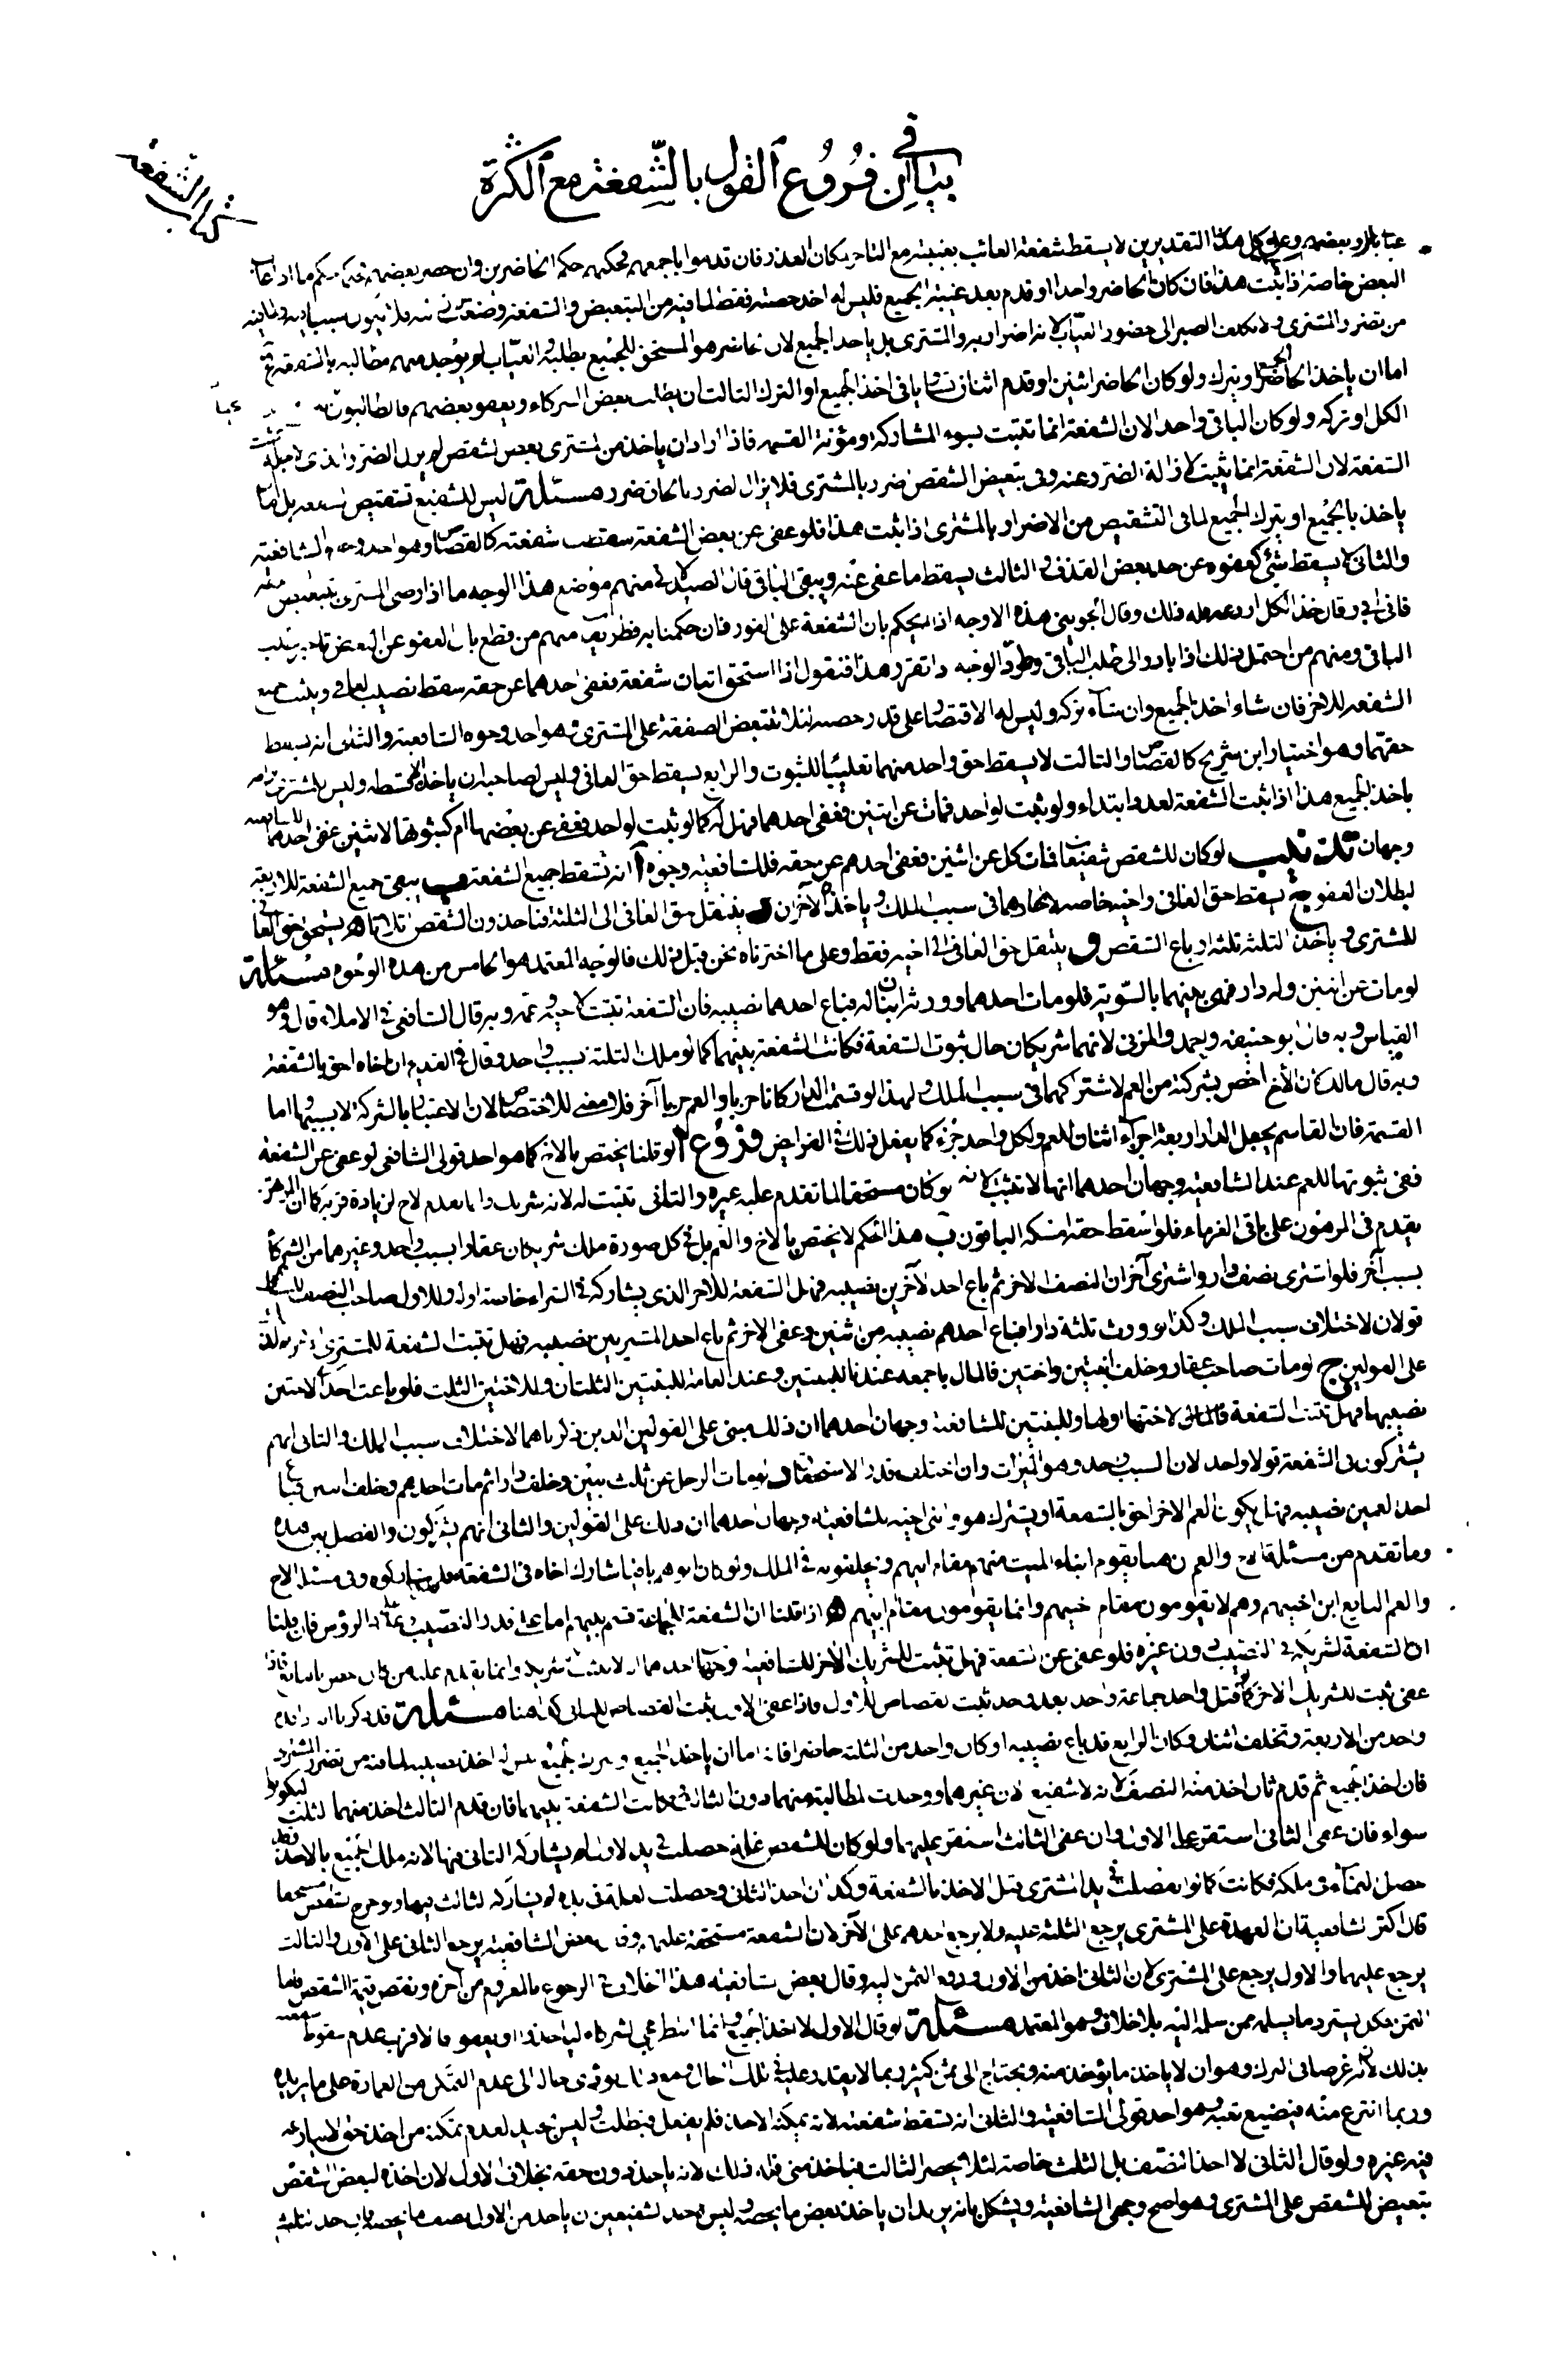 في بيان فروع القول بالشفعة مع الكثرة
كتاب الشفعة
وعلى كل التقديرين لا يسقط شفعة الغائب بغيبته مع التاخير لمكان العذر فان قدموا باجمعهم فحكمهم حكم الحاضرين وان حضر بعضهم
البعض خاصة اذا ثبت هذا فان كان الحاضر واحدا او قدم بعد غيبة الجميع فليس له اخذ حصته فقط لما فيه من التبعيض والشفعة وضعت
من تضرر المشترى ولا يكلف الصبر الى حضور الغياب لانه اضرار به و المشترى بل ياخذ الجميع لان
اما ان ياخذ الجميع او يترك ولو كان الحاضر اثنين او قدم اثنان تساويا في اخذ الجميع او الترك الثالث ان يطلب بعض الشركاء ويعفو بعضهم فالطالب
الكل او تركه ولو كان الباقي واحدا لان الشفعة انما تثبت لسوء المشاركة ومؤنة القسمة فاذا اراد ان ياخذ من المشترى بعض الشقص لم يزل الضرر الذى
الشفعة لان الشفعة انما يثبت لازالة الضرر عنه وفي تبعيض الشقص ضرر بالمشترى فلا يزال الضرر بالحاق ضرر مسئلة ليس للشفيع تشقيص الشفعة بل اما
ياخذ بالجميع او يترك الجميع لما في التشقيص من الاضرار بالمشترى اذا ثبت هذا فلو عفى عن بعض الشفعة سقطت شفعته كالقصاص وهو احد وجوه الشافعية
والثانى لا يسقط شئ كعفوه عن حد بعض القذف والثالث يسقط ما عفى عنه ويبقى الباقي قال الصيدلانى منهم موضع هذا الوجه ما اذا رضى المشترى بتبعيض
فان ابى وقال خذ الكل او دعه فله ذلك وقال الجوينى هذه الاوجه اذا لم يحكم بان الشفعة على الفور فان حكمنا به فطريقان منهم من قطع بان العفو عن البعض
الباقي ومنهم من احتمل ذلك اذا بادر الى طلب الباقي وطرد الاوجه اذا تقرر هذا فنقول اذا استحق اثنان شفعة فعفى احدهما عن حقه سقط نصيب العافي ويثبت جميع
الشفعة للاخر فان شاء اخذ الجميع وان شاء تركه وليس له الاقتصار على قدر حصته لئلا تتبعض الصفقة على المشترى وهو احد وجوه الشافعية والثانى انه يسقط
حقهما وهو اختيار ابن شريح كالقصاص والثالث لا يسقط حق واحد منهما تغليبا للثبوت والرابع يسقط حق العافي وليس لصاحبه ان ياخذ الا قسطه وليس للمشترى
ياخذ الجميع هذا اذا ثبت الشفعة لعدد ابتداء ولو ثبت لواحد فمات عن ابنين فعفى احدهما فهل له كما لو ثبت لواحد فعفى عن بعضها ام كثبوتها لاثنين عفى احدهما للشافعية
وجهان تذنيب لو كان للشقص شفيعان فمات كل عن اثنين فعفى احدهم عن حقه فللشافعية وجوه ا انه تسقط جميع الشفعة ب يبقى جميع الشفعة للاربعة
لبطلان العفو ج يسقط حق العافي واخيه خاصة لاتحادهما في سبب الملك وياخذه الآخران د ينتقل حق العافي الى الثلثة فياخذون الشقص اثلاثا ه يستحق حق العافي
للمشترى وياخذ الثلثة ثلثة ارباع الشقص و ينتقل حق العافي الى اخيه فقط وعلى ما اخترناه نحن قبل ذلك فالوجه المعتمد هو الخامس من هذه الوجوه مسئلة
لو مات عن ابنين وله دار فهى بينهما بالسوية فلو مات احدهما وورثه ابنان له فباع احدهما نصيبه فان الشفعة تثبت لاخيه وعمه وبه قال الشافعى في الاملاء قال وهو
القياس وبه قال ابو حنيفة واحمد والمزنى لانهما شريكان حال ثبوت الشفعة فكانت الشفعة بينهما كما لو ملك الثلثة بسبب واحد وقال في القديم ان اخاه احق بالشفعة
وبه قال مالك لان الأخ اخص بشركته من العم لاشتراكهما في سبب الملك ولهذا لو قسمت الدار كانا حزبا والعم حزبا آخر فلا معنى للاختصاص لان الاعتبار بالشركة لا بسببها اما
القسمة فان القاسم يجعل الدار اربعة اجزاء اثنان للعم ولكل واحد جزء كما يفعل ذلك في الفرايض فروع ا لو قلنا يختص بالاخ كما هو احد قولى الشافعى لو عفى عن الشفعة
ففى ثبوتها للعم عند الشافعية وجهان احدهما انها لا تثبت لانه لو كان مستحقا لما تقدم عليه غيره والثانى تثبت له لانه شريك وانما تقدم الاخ لزيادة قربه كما ان المرتهن
يقدم في المرهون على باقي الغرماء فلو اسقط حقه امسكه الباقون ب هذا الحكم لا يختص بالاخ والعم بل في كل صورة ملك شريكان عقارا بسبب واحد وغيرهما من الشركاء
بسبب آخر فلو اشترى نصف دار واشترى آخران النصف الاخر ثم باع احد الآخرين نصيبه فهل الشفعة للاخر الذى يشاركه في الشراء خاصة او له وللاول صاحب النصف
قولان لاختلاف سبب الملك وكذا لو ورث ثلثة دارا فباع احدهم نصيبه من اثنين وعفى الاخر ثم باع احد المشتريين نصيبه فهل تثبت الشفعة للمشترى
على القولين ج لو مات صاحب عقار وخلف ابنتين واختين فالمال باجمعه عندنا للبنتين وعند العامة للبنتين الثلثان وللاختين الثلث فلو باعت احدى الاختين
نصيبها فهل تثبت الشفعة لاختها او لها وللبنتين للشافعية وجهان احدهما ان ذلك مبنى على القولين الذين ذكرناهما لاختلاف سبب الملك والثانى انهم
يشتركون في الشفعة قولا واحدا لان السبب واحد وهو الميراث وان اختلف قدر الاستحقاق د لو مات الرجل عن ثلث بنين وخلف دارا ثم مات احدهم وخلف ابنين فباع
احد العمين نصيبه فهل يكون العم الاخر احق بالشفعة او يشترك هو وابنى اخيه للشافعية وجهان احدهما ان ذلك على القولين والثانى انهم يشتركون والفصل بين هذه
وما تقدم من مسئلة الاخ والعم ان هنا يقوم ابناء الميت منهم مقام ابيهم ويخلفونه في الملك ولو كان ابوهم باقيا شارك اخاه في الشفعة فلهذا شاركوه وفى مسئلة الاخ
والعم البايع ابن اخيهم وهم لا يقومون مقام اخيهم وانما يقومون مقام ابيهم ه اذا قلنا ان الشفعة للجماعة قسم بينهم اما على قدر النصيب او على عدد الرؤس فان قلنا
ان الشفعة لشريكه في النصيب دون غيره فلو عفى عن الشفعة فهل تثبت للشريك الاخر للشافعية وجهان احدهما
عفى ثبت للشريك الاخر كما لو قتل واحد جماعة واحدا بعد واحد ثبت القصاص للاول فاذا عفى الاول ثبت القصاص للثانى كذا هنا مسئلة قد ذكرنا انه اذا قدم
واحد من الاربعة وتخلف اثنان وكان الرابع قد باع نصيبه او كان واحد من الثلثة حاضرا فانه اما ان ياخذ الجميع او يترك الجميع ليس له اخذ نصيبه لما فيه من تضرر المشترى
فان اخذ الجميع ثم قدم ثان اخذ منه النصف لانه لا شفيع الان غيرهما ووجدت المطالبة منهما دون الثالث فكانت الشفعة بينهما فان قدم الثالث اخذ منهما الثلث ليكونوا
سواء فان عفى الثانى استقر على الاول وان عفى الثالث استقر عليهما ولو كان للشقص غلة حصلت في يد الاول لم يشاركه الثانى فيها لانه ملك الجميع بالاخذ وقد
حصل النماء في ملكه فكانت كما لو انفصلت في يد المشترى قبل الاخذ بالشفعة وكذا ان اخذ الثانى وحصلت الغلة في يده لم يشاركه الثالث فيها ولو خرج الشقص مستحقا
قال اكثر الشافعية ان العهدة على المشترى يرجع الثلثة عليه ولا يرجع احدهم على الآخر لان الشفعة مستحقة عليهم وقال بعض الشافعية يرجع الثانى على الاول والثالث
يرجع عليهما والاول يرجع على المشترى لان الثانى اخذ من الاول ودفع الثمن اليه وقال بعض الشافعية هذا الخلاف في الرجوع بالمغروم من اجرة ونقص قيمة الشقص فاما
الثمن فكل يسترد ما يسلمه ممن سلمه اليه بلا خلاف وهو المعتمد مسئلة لو قال الاول لا اخذ الجميع وانما انتظر مجئ الشركاء لياخذوا او يعفو فالاقرب عدم سقوط شفعته
بذلك لان له غرضا في الترك وهو ان لا ياخذ ما يؤخذ منه ويحتاج الى ثمن كثير ربما لا يقدر عليه في تلك الحال ومع ذلك يؤدى حاله الى عدم التمكن من العمارة على ما يريده
وربما انتزع منه فيضيع تعبه وهو احد قولى الشافعية والثانى انه تسقط شفعته لانه يمكنه الاخذ فلم يفعل فبطلت وليس بجيد لعدم تمكنه من اخذ حق لا ينازعه
فيه غيره ولو قال الثانى لا اخذ النصف بل الثلث خاصة لئلا يحضر الثالث فياخذ منى فله ذلك لانه ياخذ دون حقه بخلاف الاول لان اخذه لبعض الشقص
تبعيض للشقص على المشترى وهو اصح وجهى الشافعية ويشكل بانه يريد ان ياخذ بعض ما يخصه وليس لاحد الشفيعين ان ياخذ من الاول نصف ما يخصه